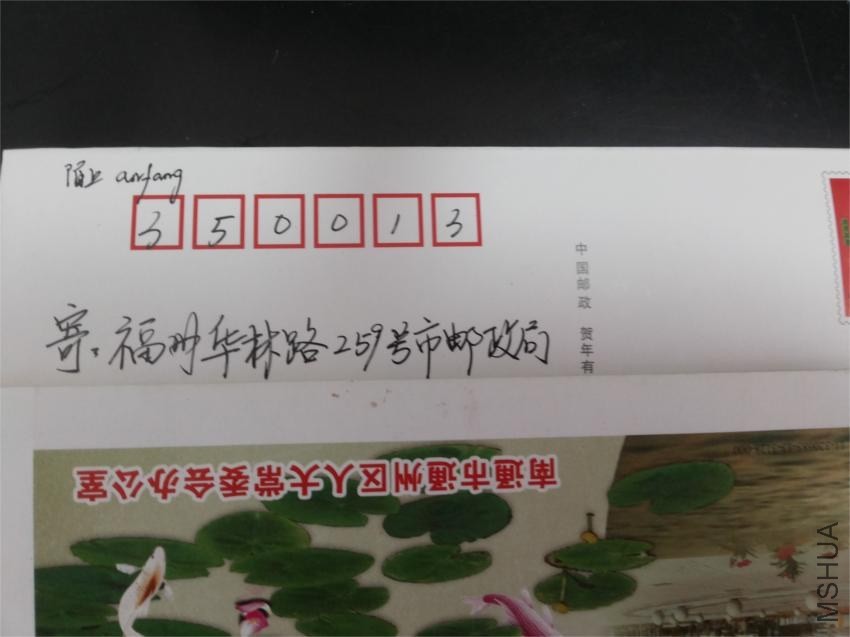 陌上 anfang
350013
寄：福州华林路259号市邮政局
中国邮政 贺年有
南通市通州区人大常委会办公室
MSHUA